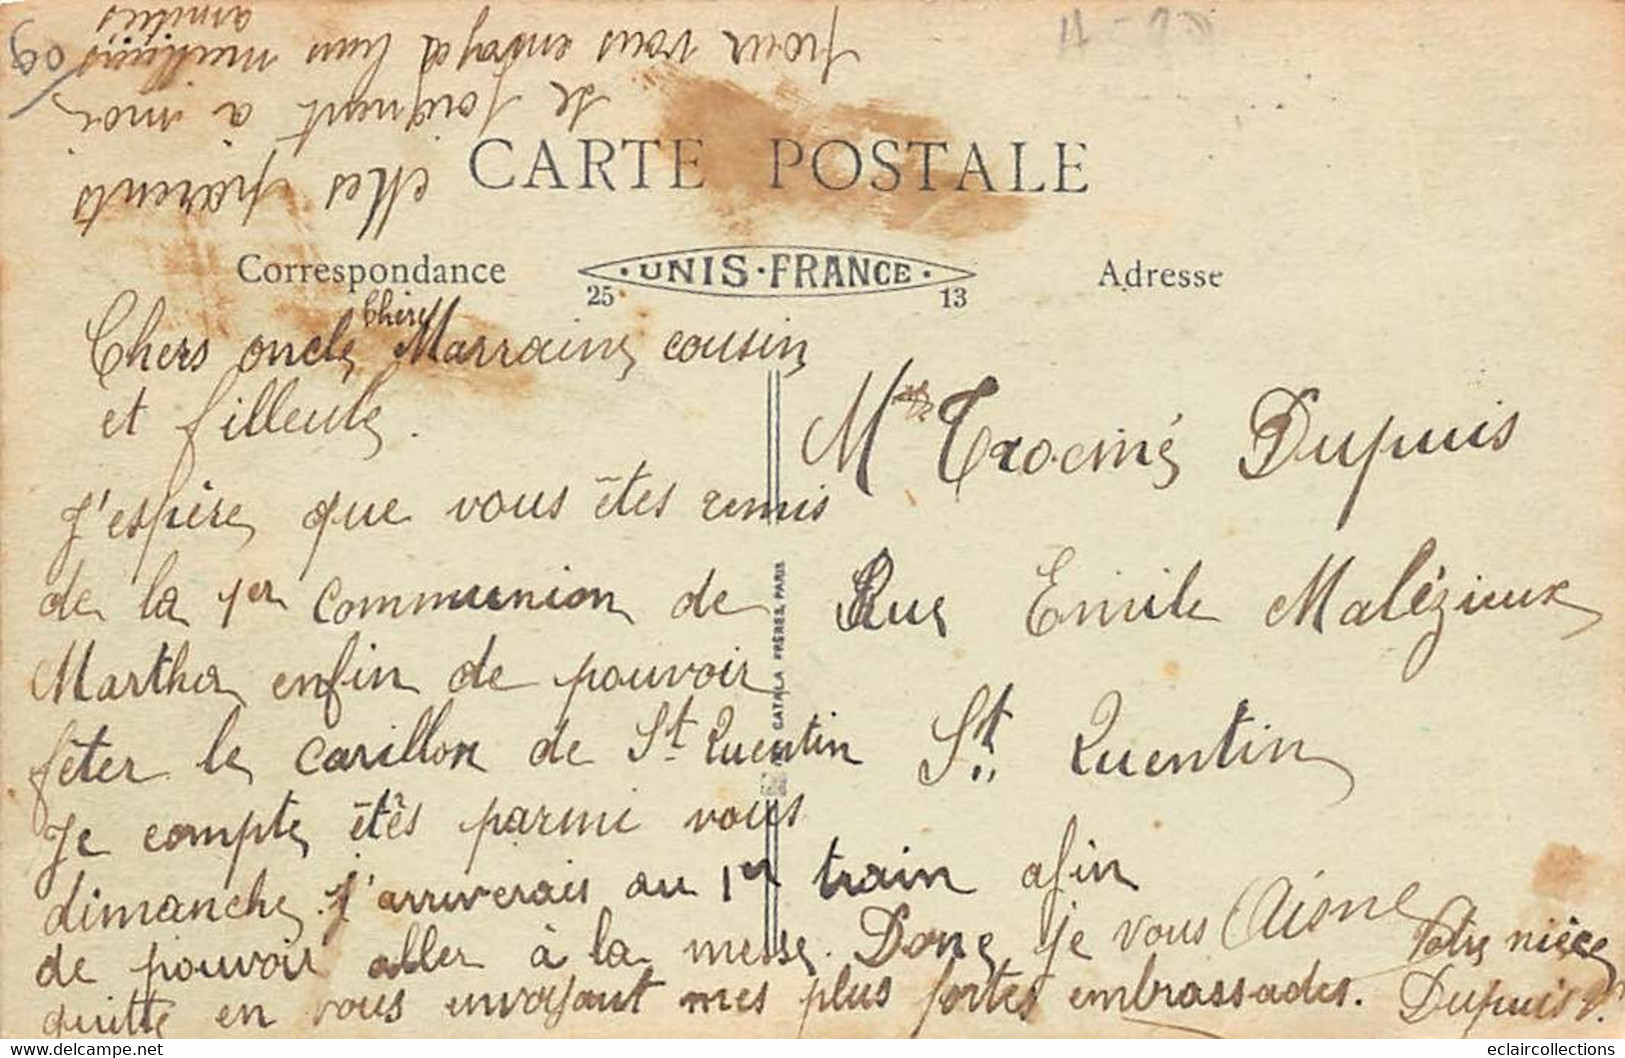 CARTE POSTALE
Correspondance
UNIS-FRANCE
25 13
Adresse
Chers oncle, chère Marraine, cousin
et filleule.
J'espère que vous êtes remis
de la 1er communion de
Martha enfin de pouvoir
fêter le carillon de St Quentin
Je compte êtês parmi vous
dimanche. J'arriverais au 1er train afin
de pouvoir aller à la messe. Donc je vous
quitte en vous envoyant mes plus fortes embrassades.
Votre nièce
Dupuis
Mes parents
se joignent à moi
pour vous envoyé leurs meilleurs
amitiés
Trocmé Dupuis
Rue Emile Malézieux
St Quentin
Aisne
CATALA FRÈRES, PARIS
09
eclaircollections